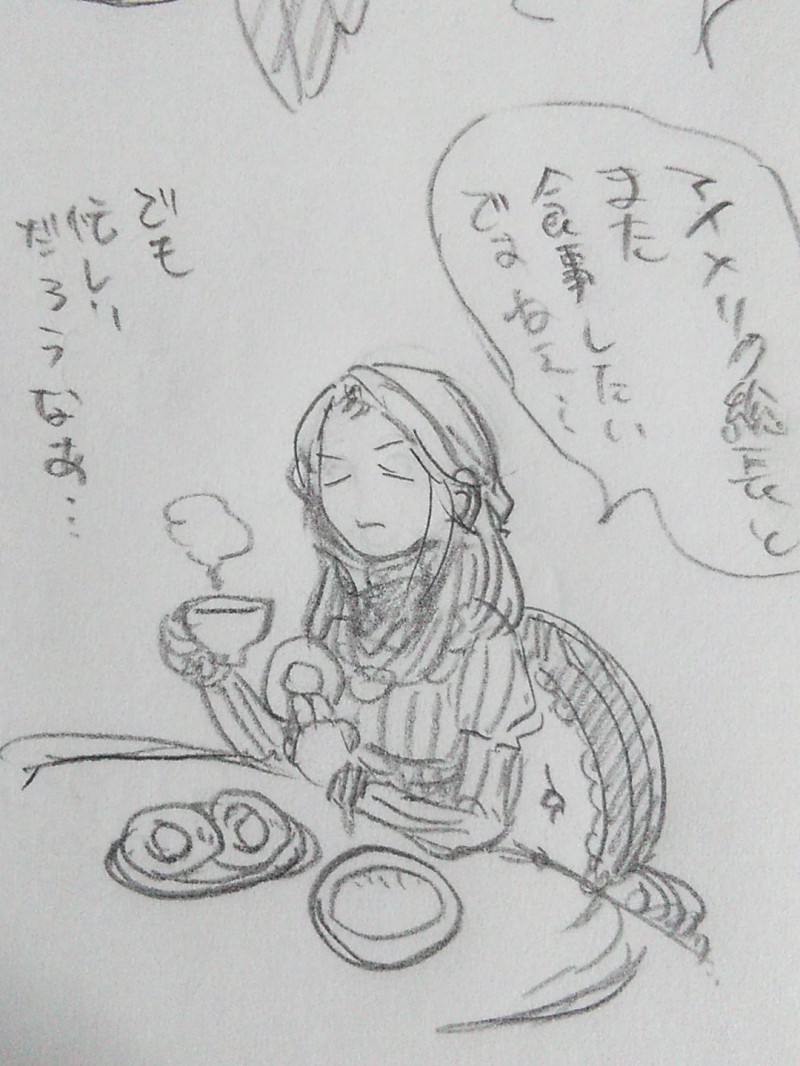 アイメリク総長と
また
食事したい
ですねぇ…
でも
忙しい
だろうなあ…